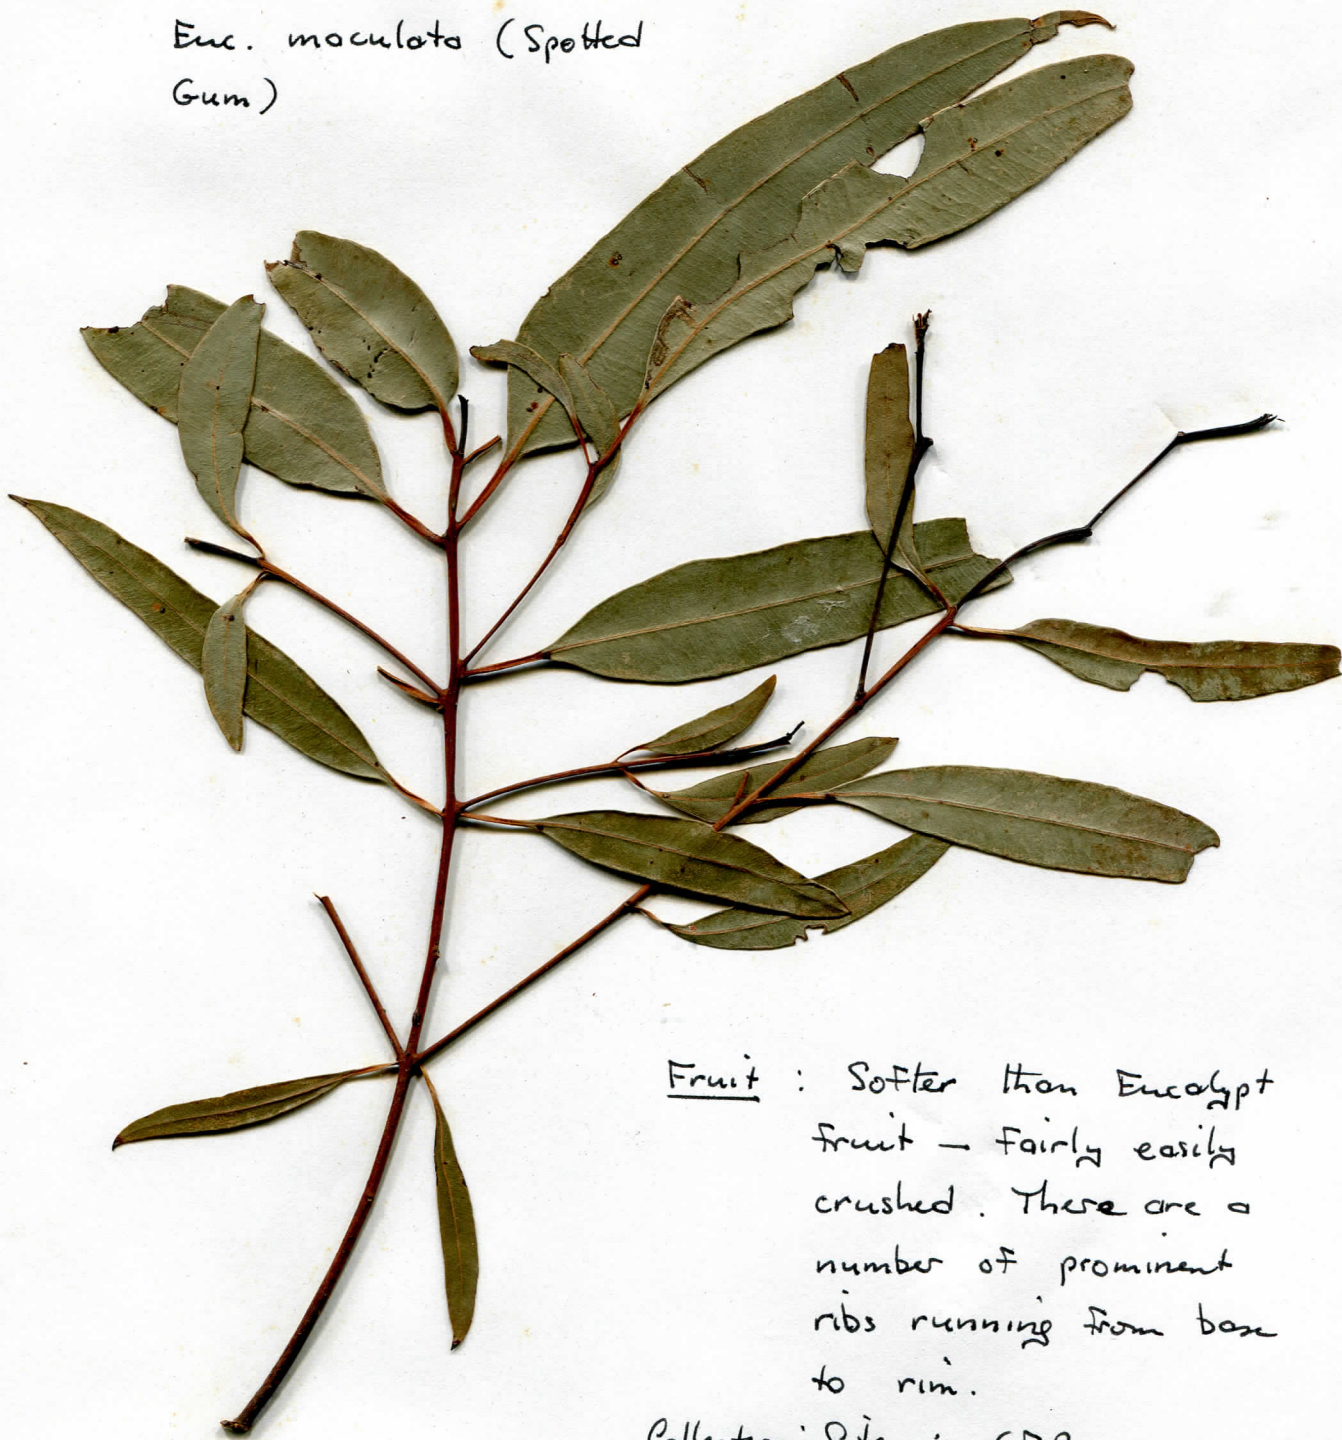 Euc. maculata (Spotted
Gum)
Fruit : Softer than Eucalypt
fruit – fairly easily
crushed. There are a
number of prominent
ribs running from base
to rim.